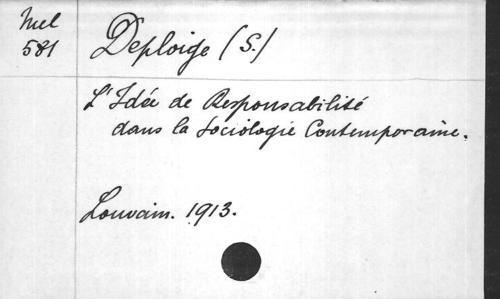 Mel
581
Deploige (S.)
L'Idée de Responsabilité
dans la Sociologie Contemporaine.
Louvain. 1913.